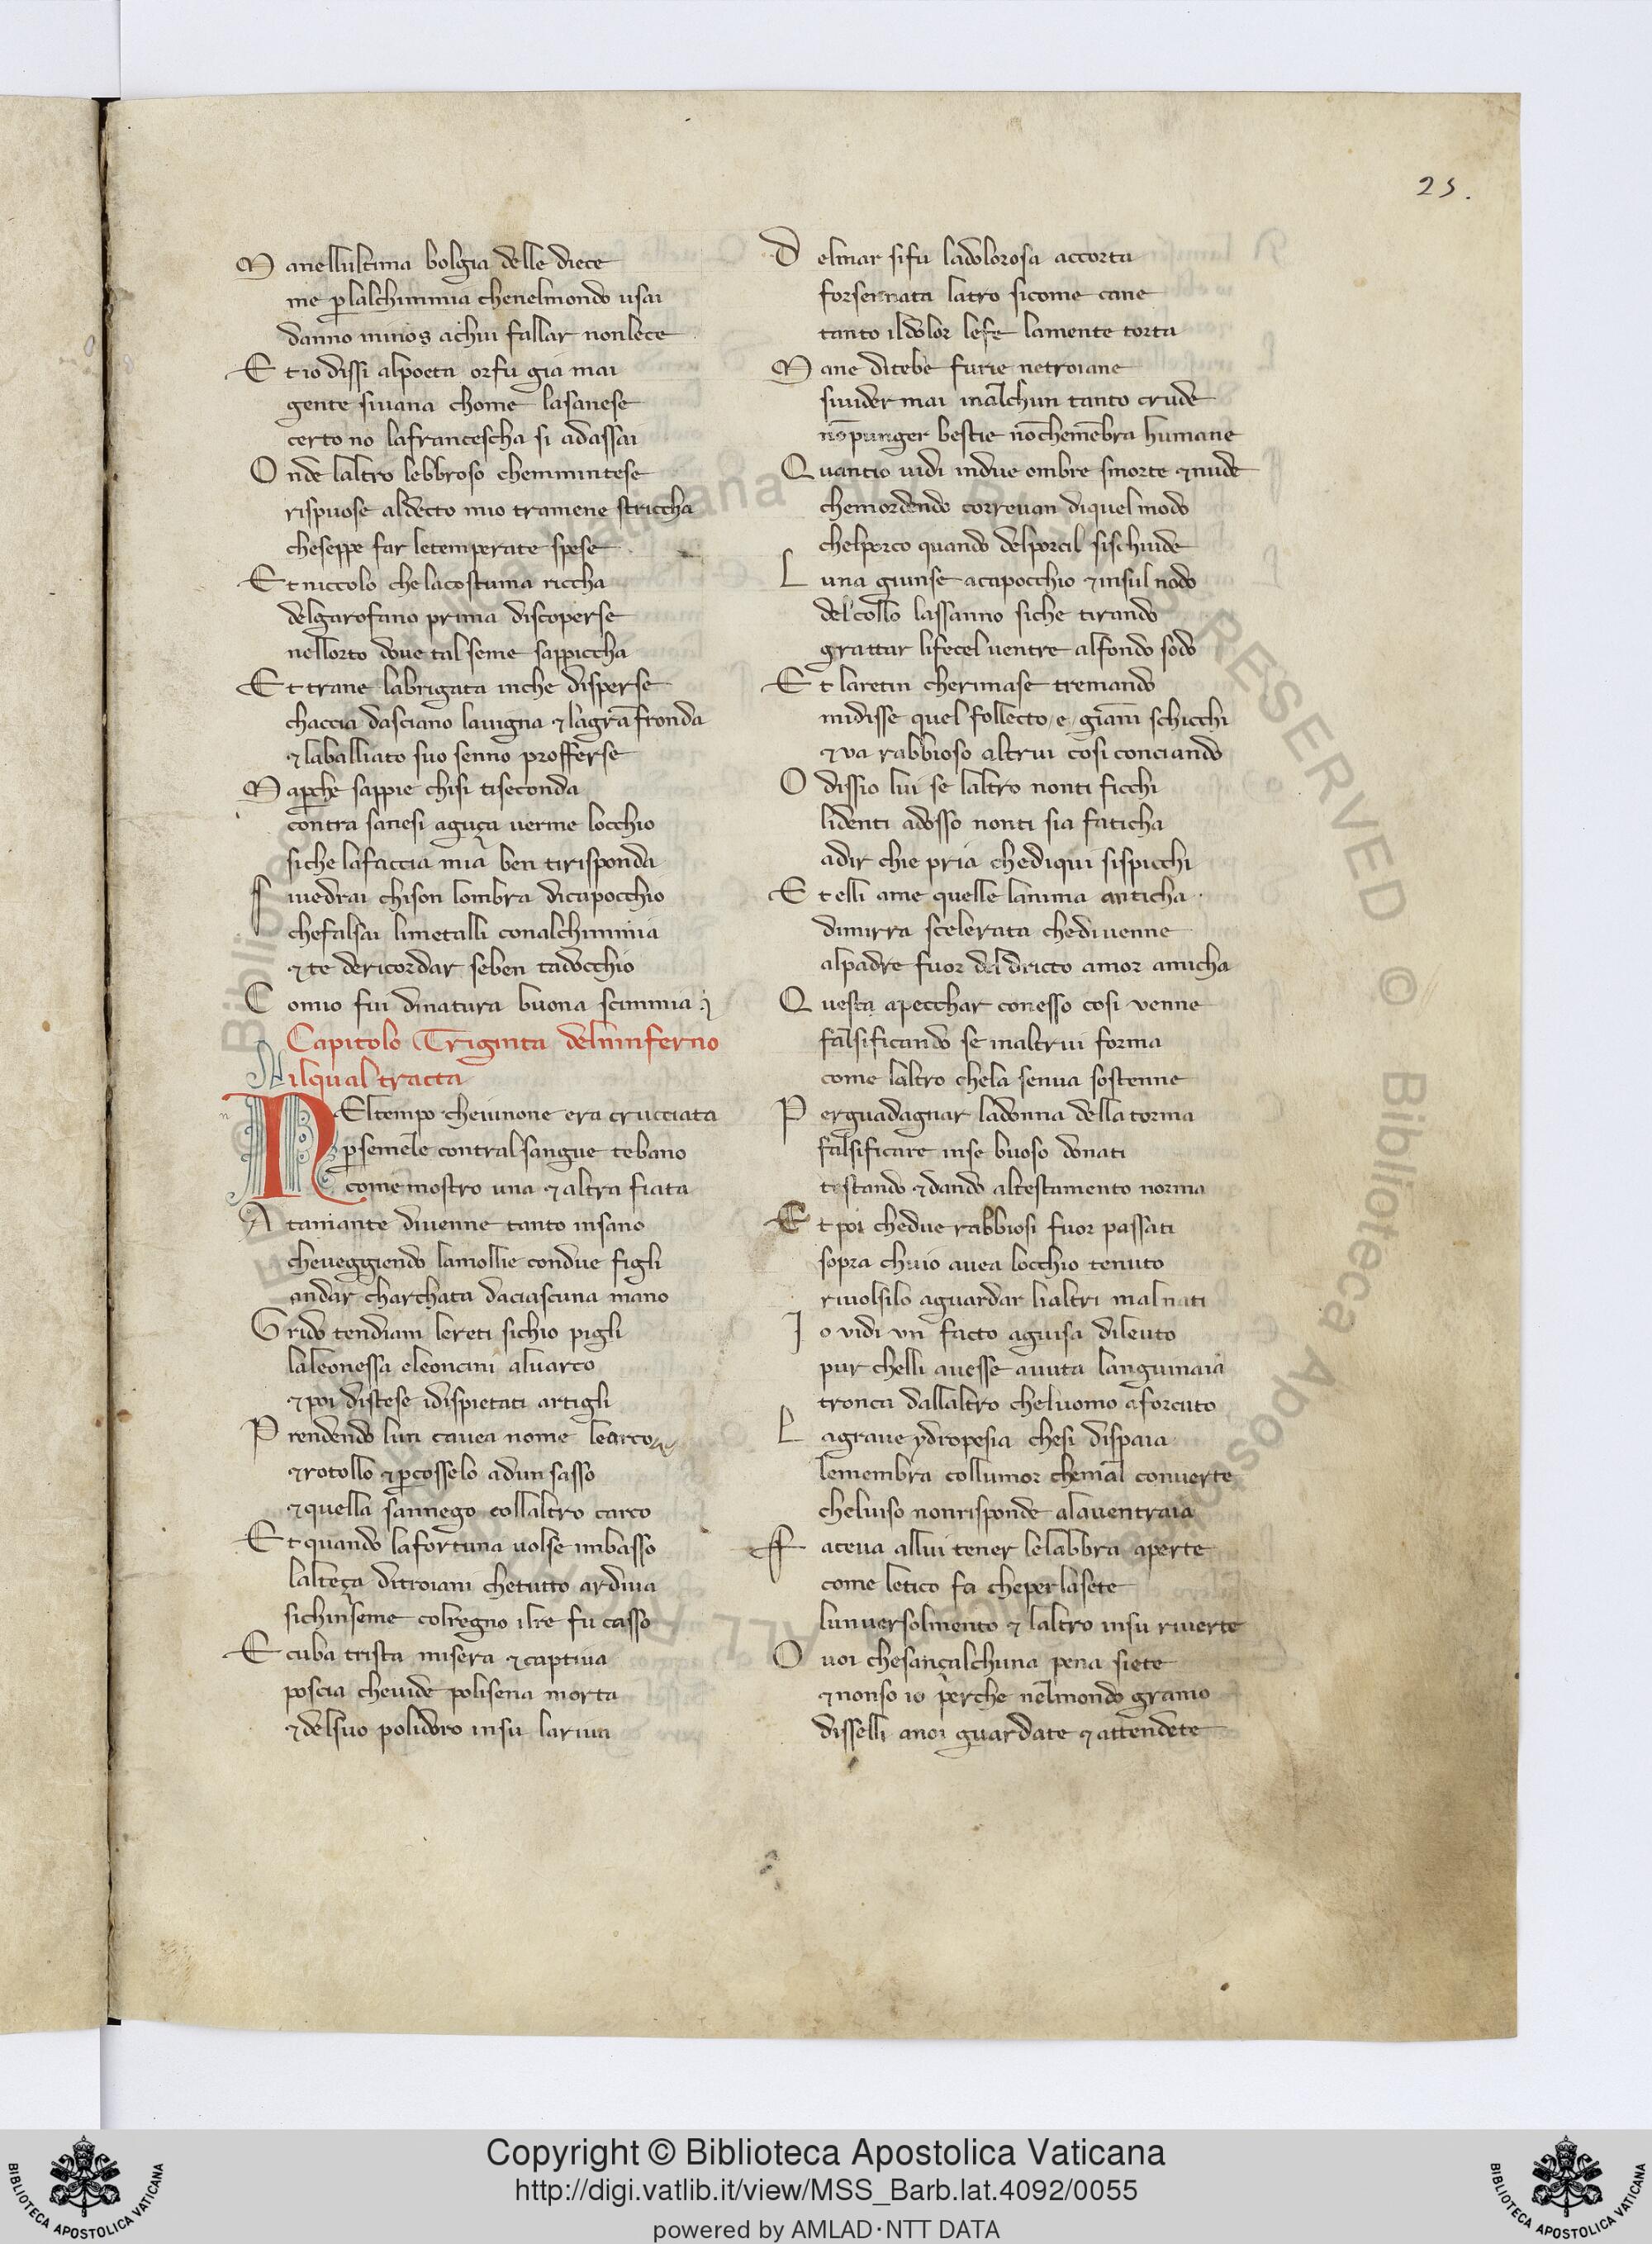 25.
M anellultima bolgia delle diece
me ꝑlalchimmia chenelmondo usai
danno minos achui fallar nonlece
E t io dissi alpoeta orfu gia mai
gente siuana chome lasanese
certo no lafrancescha si adassai
O nde laltro lebbroso chemmintese
rispuose aldecto mio tramene striccha
cheseppe far letemperate spese
E t niccolo che lacostuma riccha
delgarofano prima discoperse
nellorto doue tal seme sappiccha
E t trane labrigata inche disperse
chaccia dasciano lauigna ⁊ lagrā fronda
⁊ laballiato suo senno profferse
M aꝑche sappie chisi tiseconda
contra sanesi aguça uerme locchio
siche lafaccia mia ben tirisponda
S iuedrai chison lombra dicapocchio
chefalsai limetalli conalchimmia
⁊ te dericordar seben tadocchio
C omio fui dinatura buona scimmia
Capitolo Triginta delinferno
ilqual tracta
N El tempo cheiunone era crucciata
ꝑsemēle contral sangue tebano
come mostro una ⁊ altra fiata
A tamante diuenne tanto insano
cheueggiendo lamollie condue figli
andar charchata daciascuna mano
G rido tendiam lereti sichio pigli
laleonessa eleoncini aluarco
⁊ poi distese idispietati artigli
P rendendo lun cauea nome learco
⁊ rotollo ⁊ ꝑcosselo adun sasso
⁊ quella sannego collaltro carco
E t quando lafortuna uolse imbasso
lalteça ditroiani chetutto ardiua
sichinseme colregno ilre fu casso
E cuba trista misera ⁊ captiua
poscia cheuide polisena morta
⁊ delsuo polidoro insu lariua
D elmar sifu ladolorosa accorta
forsennata latro sicome cane
tanto ildolor lefe lamente torta
M ane ditebe furie netroiane
siuider mai inalchun tanto crude
nō punger bestie nōchemēbra humane
Q uantio uidi indue ombre smorte ⁊ nude
chemordendo correuan diquel modo
chelporco quando delporcil sischiude
L una giunse acapocchio ⁊ insul nodo
del collo lassanno siche tirando
grattar lifecel uentre alfondo sodo
E t laretin cherimase tremando
midisse quel follecto e giāni schicchi
⁊ va rabbioso altrui cosi conciando
O dissio lui se laltro nonti ficchi
lidenti adosso nonti sia faticha
adir chie pria chediqui sispicchi
E t elli ame quelle lanima anticha
dimirra scelerata chediuenne
alpadre fuor del dricto amor amicha
Q uesta apecchar conesso cosi venne
falsificando se inaltrui forma
come laltro chela senua sostenne
P erguadagnar ladonna della torma
falsificare inse buoso donati
testando ⁊ dando altestamento norma
E t poi chedue rabbiosi fuor passati
sopra chuio auea locchio tenuto
riuolsilo aguardar lialtri mal nati
I o vidi vn facto aguisa dileuto
pur chelli auesse auuta languinaia
tronca dallaltro cheluomo aforcuto
L agraue ydropesia chesi dispaia
lemembra collumor chemal conuerte
cheluiso nonrisponde alauentraia
F aceua allui tener lelabbra aperte
come letico fa cheperlasete
lunuersolmento ⁊ laltro insu riuerte
O uoi chesançalchuna pena siete
⁊ nonso io perche nelmondo gramo
disselli anoi guardate ⁊ attendete
Copyright © Biblioteca Apostolica Vaticana
http://digi.vatlib.it/view/MSS_Barb.lat.4092/0055
powered by AMLAD·NTT DATA
BIBLIOTECA APOSTOLICA VATICANA
BIBLIOTECA APOSTOLICA VATICANA